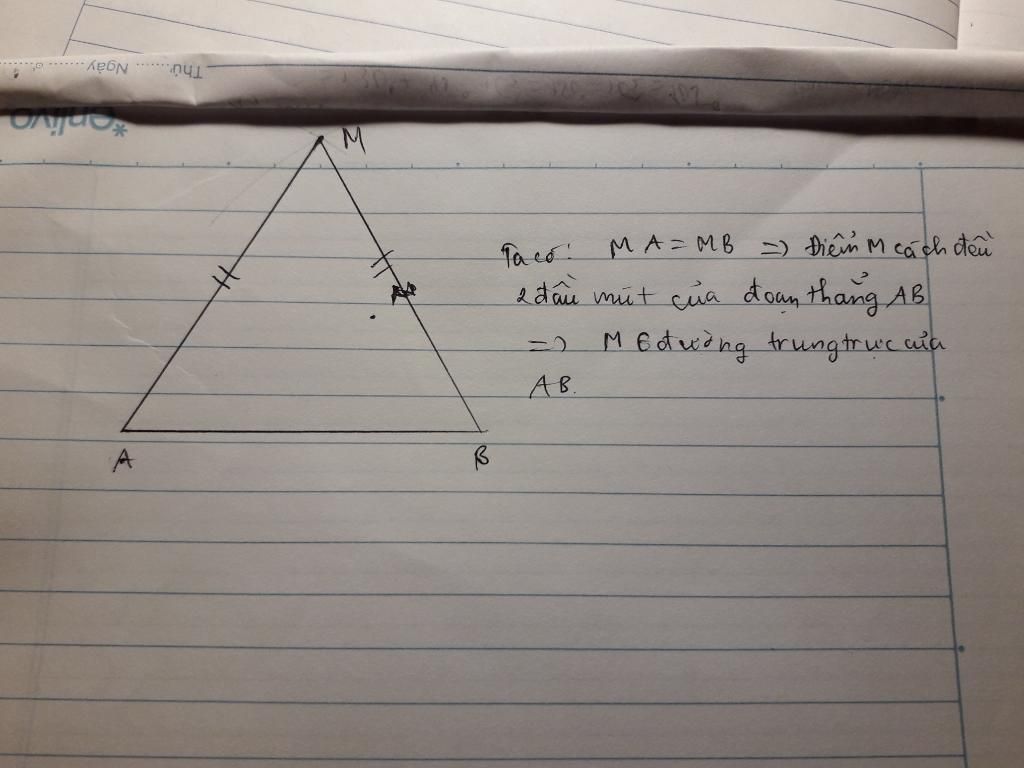 Thứ ........ Ngày ........
*enlivo
M
Ta có: MA = MB => Điểm M cách đều
2 đầu mút của đoạn thẳng AB
=> M ∈ đường trung trực của
AB.
A
B